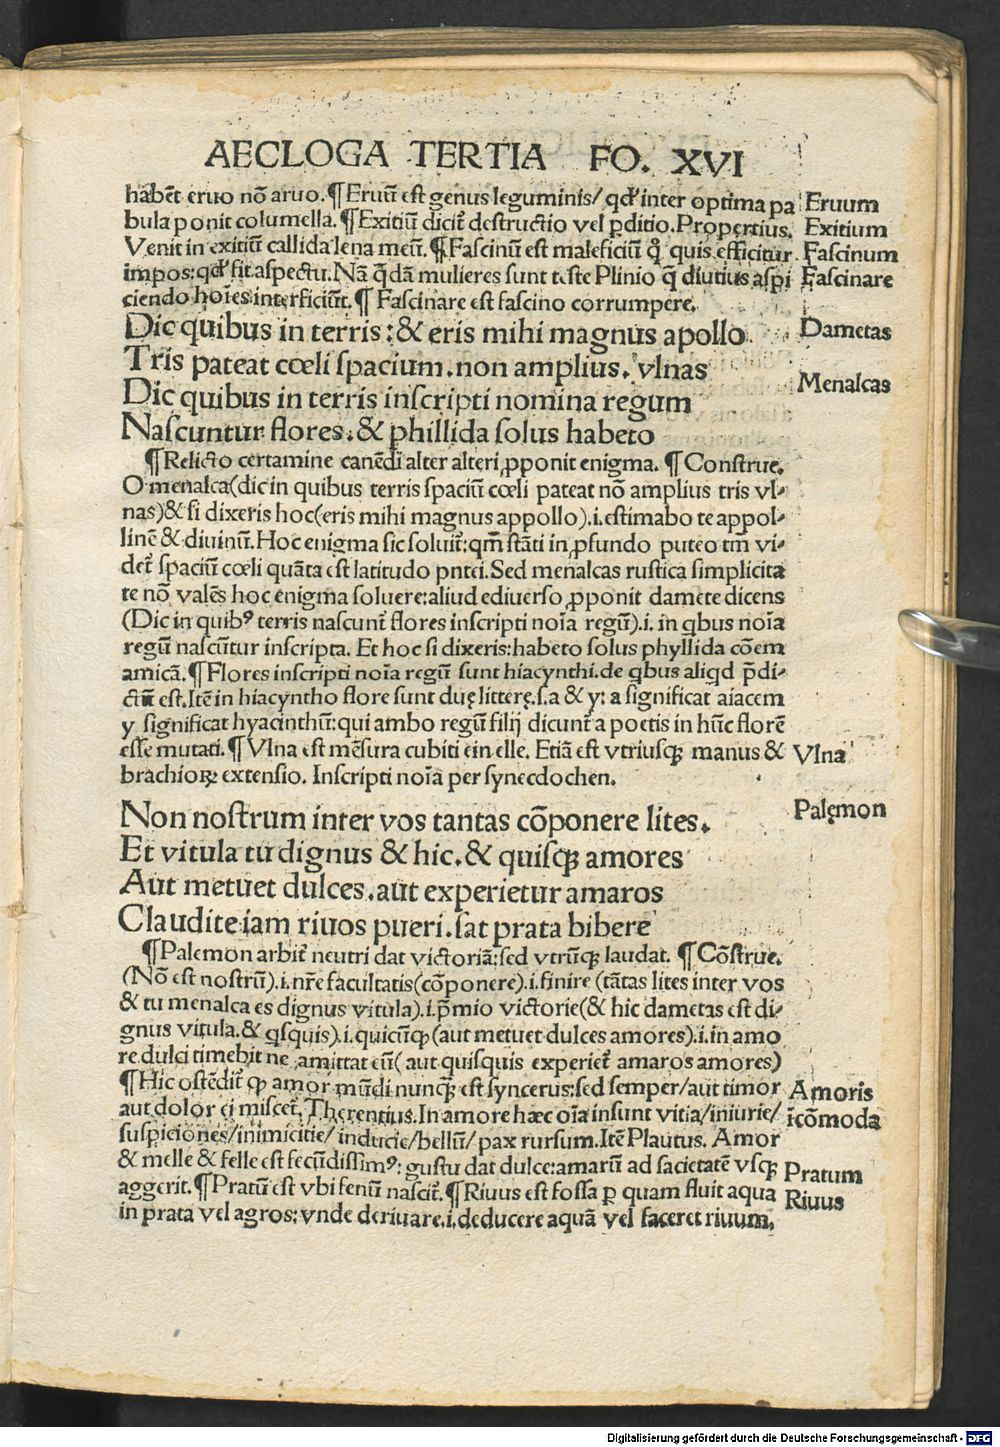 AECLOGA TERTIA FO. XVI
habēt eruo nō aruo. ¶ Eruū est genus leguminis/ qd' inter optima pa Eruum
bula ponit columella. ¶ Exitiū dicit̄ destructio vel p̱ditio. Propertius. Exitium
Venit in exitiū callida lena meū. ¶ Fascinū est maleficiū q̇ quis efficitur Fascinum
impos: qd' fit aspectu. Nā q̄dā mulieres sunt teste Plinio q̄ diutius aspi Fascinare
ciendo hoīes interficiūt. ¶ Fascinare est fascino corrumpere.
Dic quibus in terris: & eris mihi magnus apollo. Dametas
Tris pateat cœli spacium. non amplius. vlnas
Dic quibus in terris inscripti nomina regum Menalcas
Nascuntur flores. & phillida solus habeto
¶ Relicto certamine canēdi alter alteri ꝓponit enigma. ¶ Construe.
O menalca(dic in quibus terris spaciū cœli pateat nō amplius tris vl-
nas)& si dixeris hoc(eris mihi magnus appollo).i. estimabo te appol-
linē & diuinū. Hoc enigma sic soluit̄: qm̄ stāti in ꝓfundo puteo tm̄ vi-
det̄ spaciū cœli quāta est latitudo pntei. Sed menalcas rustica simplicita
te nō valēs hoc enigma soluere: aliud ediuerso ꝓponit damete dicens
(Dic in quibꝰ terris nascunt̄ flores inscripti noīa regū).i. in qbus noīa
regū nascūtur inscripta. Et hoc si dixeris: habeto solus phyllida cōem
amicā. ¶ Flores inscripti noīa regū sunt hiacynthi. de qbus aliqd p̄di-
ctū est. Itē in hiacyntho flore sunt duę litterę. s. a & y: a significat aiacem
y significat hyacinthū: qui ambo regū filij dicunt̄ a poetis in hūc florē
esse mutati. ¶ Vlna est mēsura cubiti ein elle. Etiā est vtriusqꝫ manus & Vlna
brachioꝝ extensio. Inscripti noīa per synecdochen.
Non nostrum inter vos tantas cōponere lites. Palęmon
Et vitula tu dignus & hic. & quisqꝫ amores
Aut metuet dulces. aut experietur amaros
Claudite iam riuos pueri. sat prata bibere
¶ Palemon arbit̄ neutri dat victoriā: sed vtrūqꝫ laudat. ¶ Cōstrue.
(Nō est nostrū).i. nr̄e facultatis(cōponere).i. finire (tātas lites inter vos
& tu menalca es dignus vitula).i. p̄mio victorie(& hic dametas est di-
gnus vitula. & qsquis).i. quicūqꝫ (aut metuet dulces amores).i. in amo
re dulci timebit ne amittat eū( aut quisquis experiet̄ amaros amores)
¶ Hic ostēdit̄ ꝙ amor mūdi nunqꝫ est syncerus: sed semper/ aut timor Amoris
aut dolor ei miscet̄. Therentius. In amore hæc oīa insunt vitia/ iniurie/ īcōmoda
suspiciones/ inimicitie/ inducie/ bellū/ pax rursum. Itē Plautus. Amor
& melle & felle est fecūdissimꝰ: gustu dat dulce: amarū ad sacietatē vsqꝫ Pratum
aggerit. ¶ Pratū est vbi fenū nascit̄. ¶ Riuus est fossa ꝑ quam fluit aqua Riuus
in prata vel agros: vnde deriuare. i. deducere aquā vel faceret riuum.
Digitalisierung gefördert durch die Deutsche Forschungsgemeinschaft - DFG